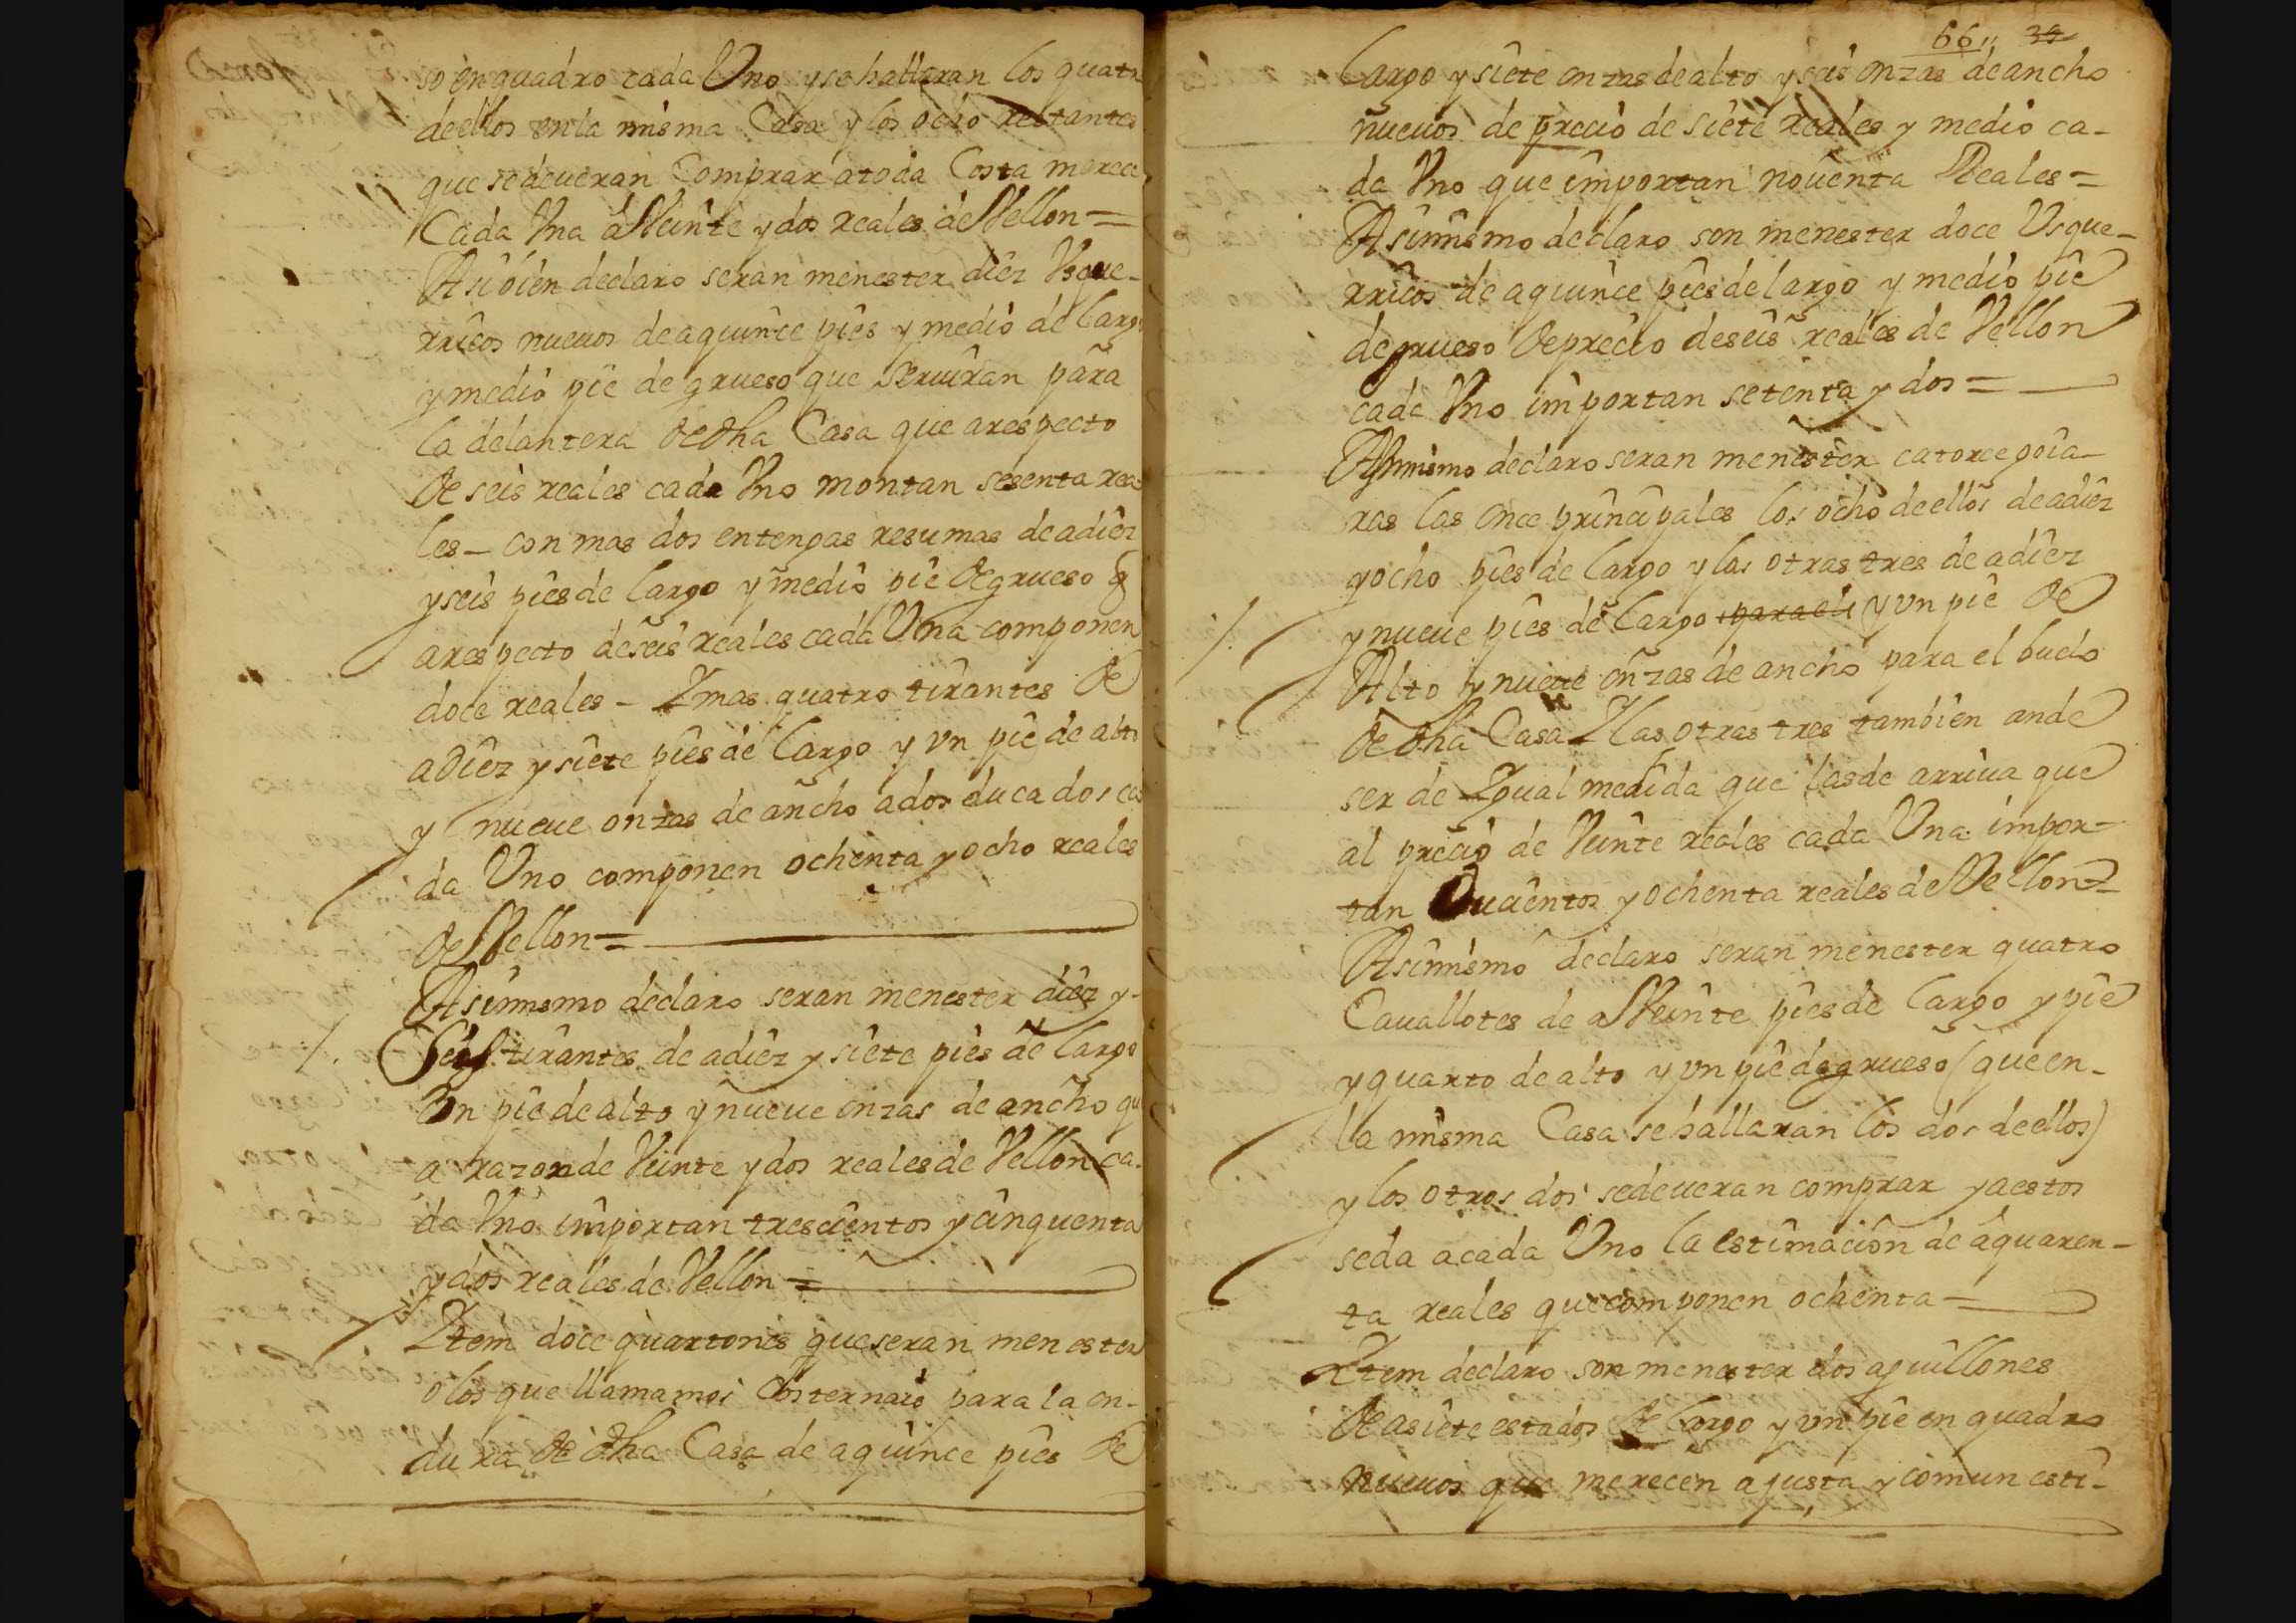 so en quadro cada Uno y se hallaran los quatr
de ellos en la misma Casa y los ocho restantes
que se deueran Comprar a toda Costa merece
Cada Vna â Veinte y dos reales de Vellon =
Asi bien declaro seran menester diez Vsque-
rricos nueuos de a quince pies y medio de largo
y medio pie de grueso que seruiran para
la delantera de dha Casa que a respecto
de seis reales cada Vno montan sesenta rea
les - con mas dos entengas resumas de a diez
y seis pies de largo y medio pie de grueso q
a respecto de seis reales cada Vna componen
doce reales - Y mas quatro tirantes de
a diez y siete pies de largo y vn pie de alto
y nueue onzas de ancho a dos ducados ca
da Vno componen ochenta y ocho reales
de Vellon =
Asimismo declaro seran menester diez y-
seis tirantes de a diez y siete pies de largo
Vn pie de alto y nueue onzas de ancho qu
a razon de Veinte y dos reales de Vellon ca-
da Vno importan trescientos y cinquenta
y dos reales de Vellon =
Item doce quartones que seran menester
o los que llamamos Costernaio para la on-
dura de dha Casa de a quince pies de
66,, 39
largo y siete onzas de alto y seis onzas de ancho
nueuos de precio de siete reales y medio ca-
da Vno que importan nouenta Reales =
Asimismo declaro son menester doce Vsque-
rricos de a quince pies de largo y medio pie
de grueso de precio de seis reales de Vellon
cada Vno importan setenta y dos =
Asimismo declaro seran menester catorce goia-
ras las once principales los ocho de ellos de a diez
y ocho pies de largo y las otras tres de a diez
y nueue pies de largo para el y vn pie de
Alto y nueue onzas de ancho para el buelo
de dha Casa Y las otras tres tambien an de
ser de Ygual medida que las de arriua que
al precio de Veinte reales cada Vna impor-
tan Ducientos y ochenta reales de Vellon =
Asimismo declaro seran menester quatro
Cauallotes de a Veinte pies de largo y pie
y quarto de alto y vn pie de grueso (que en-
la misma Casa se hallaran los dos de ellos)
y los otros dos se deueran comprar y a estos
se da a cada Uno la estimacion de a quaren-
ta reales que componen ochenta =
Item declaro son menester dos aguillones
de a siete estados de largo y vn pie en quadro
nueuos que merecen a justa y comun esti-